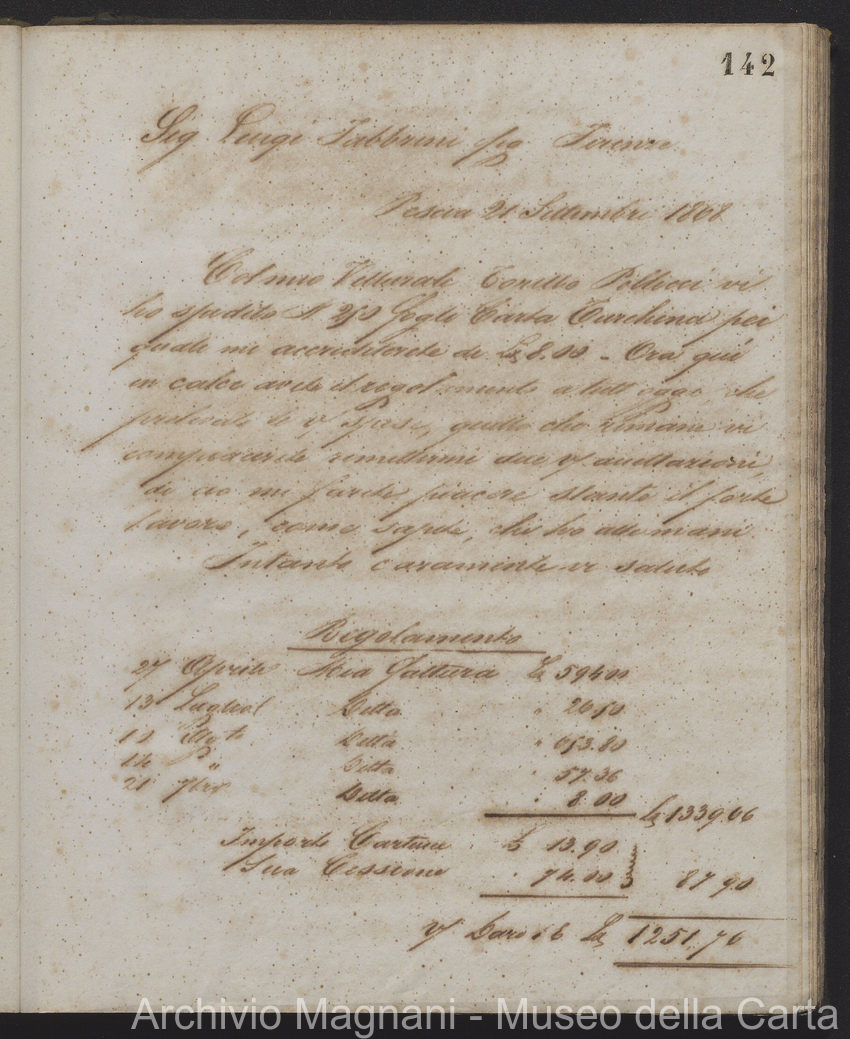 142
Sig. Luigi Fabbrini pq Firenze
Pescia 21 Settembre 1868
Col mio Vetturale Torello Pellicci vi
ho spedito N 250 Fogli Carta Turchina pei
quali mi accrediterete di L 8.00 - Ora qui
in calce avete il regolamento a tutt'oggi che
prelevate le V/ spese, quello che rimane vi
compiacerete rimettermi due V/ accettazioni,
di ciò mi farete piacere stante il forte
lavoro, come sapete, che ho alle mani
Intanto caramente vi saluto
Regolamento
27 Aprile Mia fattura L 594.00
13 Luglio Detta " 26.50
12 Agto Detta " 653.80
14 " Detta " 57.36
21 7bre Detta " 8.00 L 1339.66
Importo Cartone L 13.90
Sua Cessione " 74.00 87.90
V/ Dare L 1251.76
Archivio Magnani - Museo della Carta